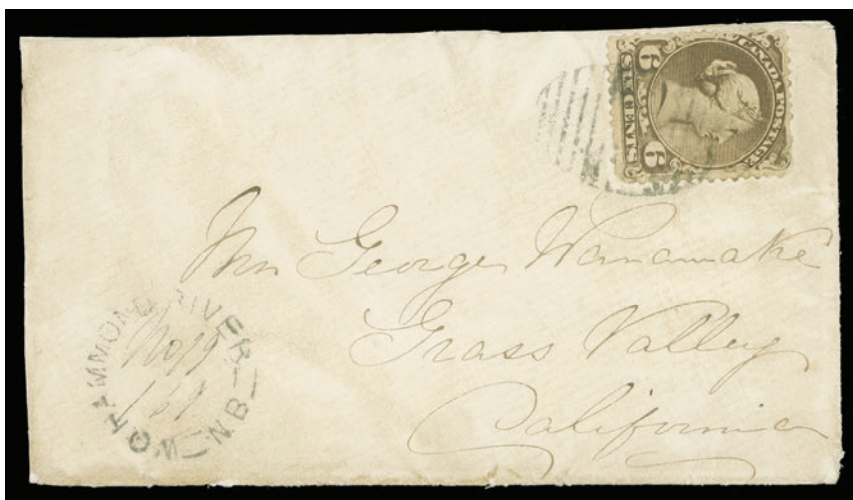 CANADA POSTAGE
SIX CENTS
6 6
Mrs George Wanamake
Grass Valley
California
HAMMOND RIVER
N.B